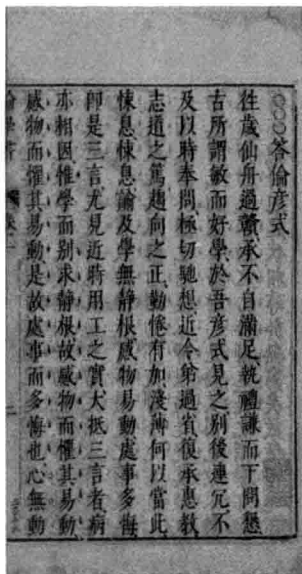 ○○○答倫彥式
往歲仙舟過贛承不自滿足執禮謙而下問懇
古所謂敏而好學於吾彥式見之別後連冗不
及以時奉問極切馳想近令弟過省復承惠教
志道之篤趨向之正勤惓有加淺薄何以當此
悚息悚息諭及學無靜根感物易動處事多悔
即是三言尤見近時用工之實大抵三言者病
亦相因惟學而別求靜根故感物而懼其易動
感物而懼其易動是故處事而多悔也心無動